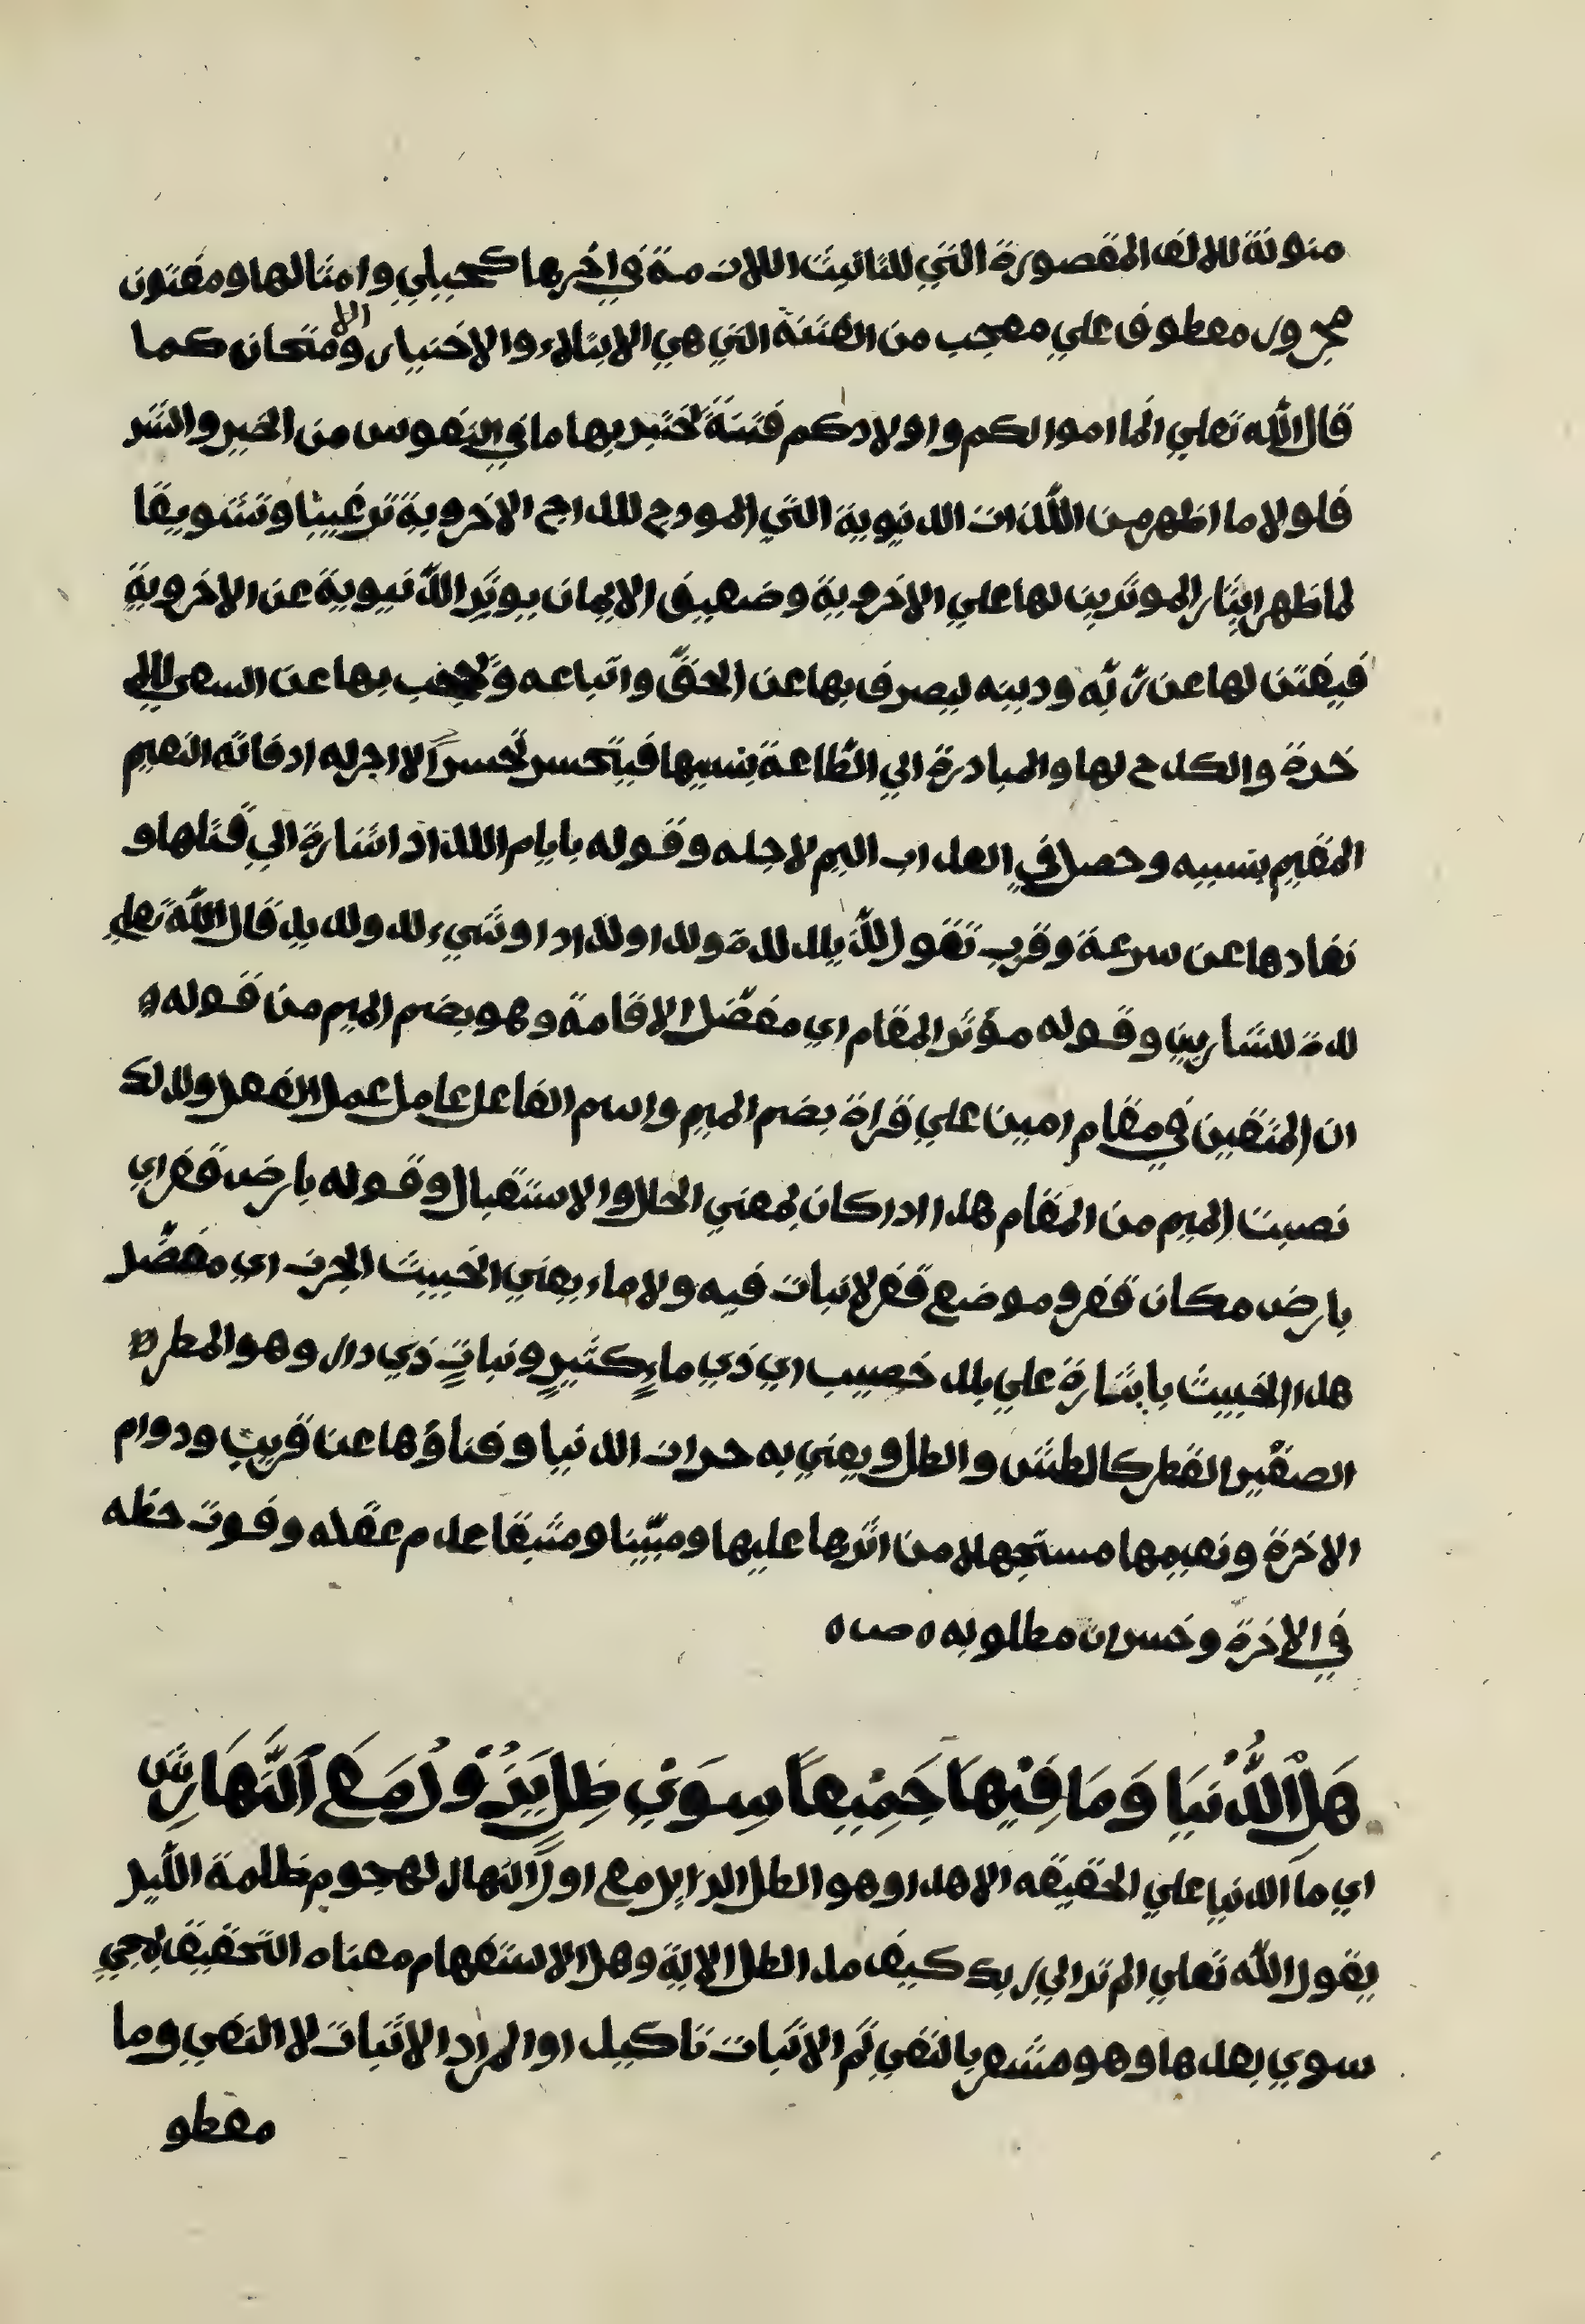 منونة للالف المقصورة التي للتانيث اللازمة في اخرها كحبلي وامثالها ومفتون
مجرور معطوف علي معجب من الفتنة التي هي الابتلاء والاختيار والامتحان كما
قال الله تعلي انما اموالكم واولادكم فتنة تختبر بها ما في النفوس من الخير والشر
فلولا ما اظهر من اللذات الدنيوية التي المودج للداج الاخروية ترغيبا وتشويقا
لما ظهر ايثار الموثرين لها علي الاخروية وضعيف الايمان يوثر الدنيوية عن الاخروية
فيفتن لها عن ربه ودينه ليصرف بها عن الحق واتباعه و بها عن السعي للا
خرة والكدح لها والمبادرة الي الطاعة بنسيها فيتحسر تحسرا لا اجر له اذ فاته النعيم
المقيم بنسيه وحصل في العذاب اليم لاجله وقوله بايام اللذاذ اشارة الي قتلها و
نفادها عن سرعة وقرب تقول لذ يلذ لذة ولذا ولذاذا وشيء لذ ولذيذ قال الله تعلي
لذة للشاربين وقوله مؤثر المقام اي مفضل الاقامة وهو بضم الميم من قوله
ان المتقين في مقام امين علي قراة بضم الميم واسم الفاعل عامل عمل الفعل ولذلك
نصبت الميم من المقام هذا اذا كان لمعني الحال والاستقبال وقوله بارض قفر اي
بارض مكان قفر وموضع قفر لا نبات فيه ولا ماء يعني الخبيث الجرز اي مفضل
هذا الخبيث باشارة علي بلد خصيب اي ذي ماء كثير ونبات ذي دار وهو المطر
الصغير القطر كالطش والطل ويعني به حرات الدنيا وفناؤها عن قريب ودوام
الاخرة ونعيمها مستجهلا من اثرها عليها ومبينا ومثبقا عدم عقله وفوت حظه
في الاخرة وخسران مطلوبه ه صه ه
هَلِ الدُّنْيَا وَمَا فِيْهَا جَمِيْعاً سِوَىْ ظِلٍّ يَزُوْلُ مَعَ النَّهَارِ ش
اي ما الدنيا علي الحقيقه الا هذا وهو الظل الزايل مع اول النهال لهجوم ظلمة الليل
يقول الله تعلي الم تر الي ربك كيف مد الظل الاية وهل الاستفهام معناه التحقيق لمجي
سوي بعدها وهو مشعر بالنفي ثم الاثبات تاكيدا والمراد الاثبات لا النفي وما
معطو